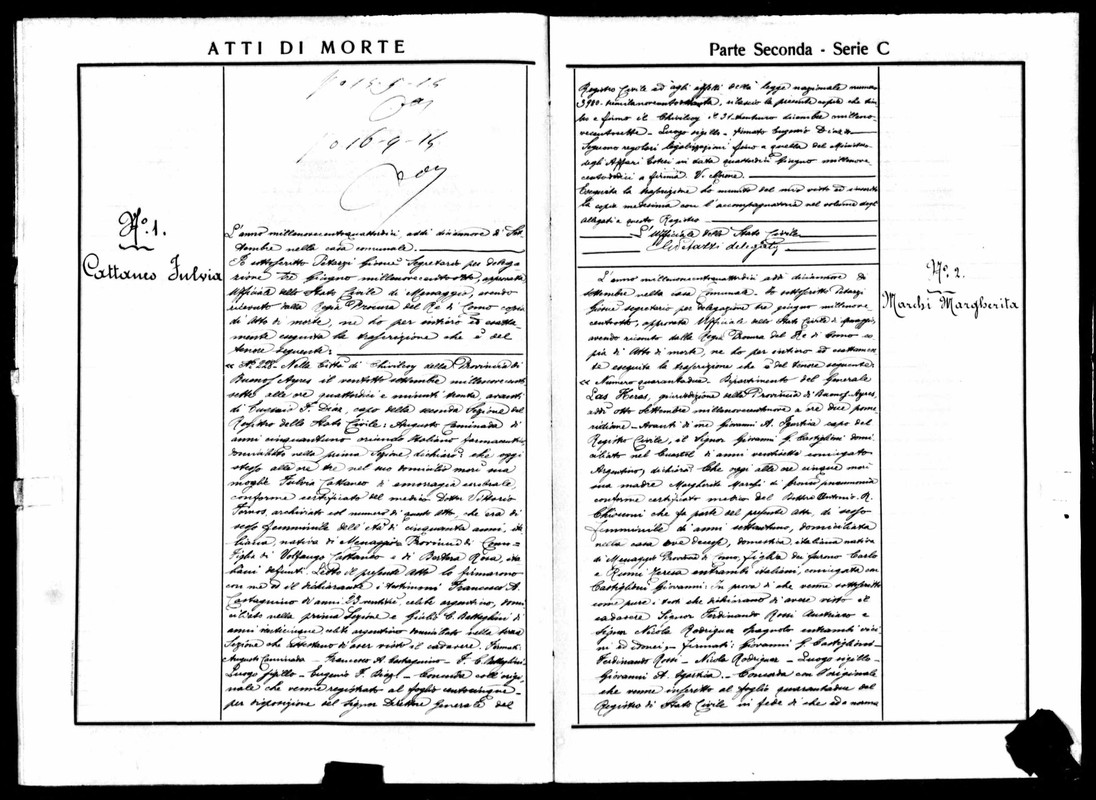 ATTI DI MORTE
16-9-14
N.° 1.
Cattaneo Fulvia
L'anno millenovecentoquattordici, addì diciannove di Set-
tembre nella casa comunale.
Io sottoscritto Petazzi Giosuè Segretario per delega-
zione tre Giugno millenovecentootto, approvata
Ufficiale dello Stato Civile di Menaggio, avendo
ricevuto dalla Regia Procura del Re di Como copia
di Atto di morte, ne ho per intiero ed esatta-
mente eseguita la trascrizione che è del
tenore seguente:
« N. Nella Città di Chivilcoy della Provincia di
Buenos Ayres il ventotto settembre millenovecento
sette alle ore quattordici e minuti trenta, avanti
di Eugenio F. Diaz, capo della seconda Sezione del
Registro dello Stato Civile: Augusto Caminada di
anni cinquantuno oriundo Italiano farmacista
domiciliato nella prima Sezione, dichiarò che oggi
stesso alle ore tre nel suo domicilio morì sua
moglie Fulvia Cattaneo di emorragia cerebrale,
conforme certificato del medico Dottor Vittorio
archiviato col numero di questo atto, che era di
sesso femminile dell'età di cinquanta anni, ita-
liana, nativa di Menaggio Provincia di Como -
figlia di Volfango Cattaneo e di Rosa, ita-
liani defunti. Letto il presente atto lo firmarono
con me ed il dichiarante i testimoni Francesco A.
Castagnino d'anni 23 ventitre, celibe argentino, domi-
ciliato nella prima Sezione e Giulio C. Battaghini di
anni venticinque celibe argentino domiciliato nella terza
Sezione che attestano di aver visto il cadavere. Firmati
Augusto Caminada - Francesco A. Castagnino - Battaghini
Luogo sigillo - Eugenio F. Diaz - Concorda coll'origi-
nale che venne registrato al foglio centocinque -
per disposizione del Signor Direttore Generale del
Parte Seconda - Serie C
Registro Civile ed agli effetti della legge nazionale numero
rilascio la presente copia che tim-
bro e firmo in Chivilcoy il 31 trentuno dicembre milleno-
vecentosette - Luogo sigillo - firmato Eugenio Diaz
Seguono regolari legalizzazioni fino a quella del Ministero
degli Affari Esteri in data quattordici Giugno millenove-
centododici a firma
Eseguita la trascrizione ho munito del mio visto ed inserito
la copia medesima con l'accompagnatoria nel volume degli
allegati a questo Registro
L'Ufficiale dello Stato Civile
delegato
N.° 2.
Marchi Margherita
L'anno millenovecentoquattordici addì diciannove di
settembre nella casa comunale. Io sottoscritto Petazzi
Giosuè segretario per delegazione tre giugno millenove-
centootto, approvata Ufficiale dello Stato Civile di Menaggio,
avendo ricevuto dalla Regia Procura del Re di Como co-
pia di Atto di morte, ne ho per intiero ed esattamen-
te eseguita la trascrizione che è del tenore seguente:
« Numero quarantadue. Dipartimento del Generale
Las Heras, giurisdizione della Provincia di Buenos Ayres,
addì otto Settembre millenovecentonove a ore dieci pome-
ridiane - Avanti di me Giovanni A. capo del
Registro Civile, il Signor Giovanni G. Castiglioni domi-
ciliato nel Cuartel di anni ventisette coniugato
Argentino, dichiarò Che oggi alle ore cinque morì
sua madre Margherita Marchi di bronco pneumonia
conforme certificato medico del Dottor Antonio R.
che fa parte del presente atto, di sesso
femminile di anni settantuno, domiciliata
nella casa ove decesse, domestica, italiana nativa
di Menaggio Provincia di Como, figlia dei furono Carlo
e Teresa entrambi italiani, coniugata con
Castiglioni Giovanni: In prova di che venne sottoscritto
come pure i testi che dichiarano di avere visto il
cadavere Signor Ferdinando Rossi Austriaco e
Signor Nicola Rodriguez Spagnolo entrambi vici-
ni ed idonei - firmati: Giovanni G. Castiglioni -
Ferdinando Rossi - Nicola Rodriguez - Luogo sigillo -
Giovanni A. - Concorda con l'originale
che venne inscritto al foglio quarantadue del
Registro di Stato Civile in fede di che ed a norma